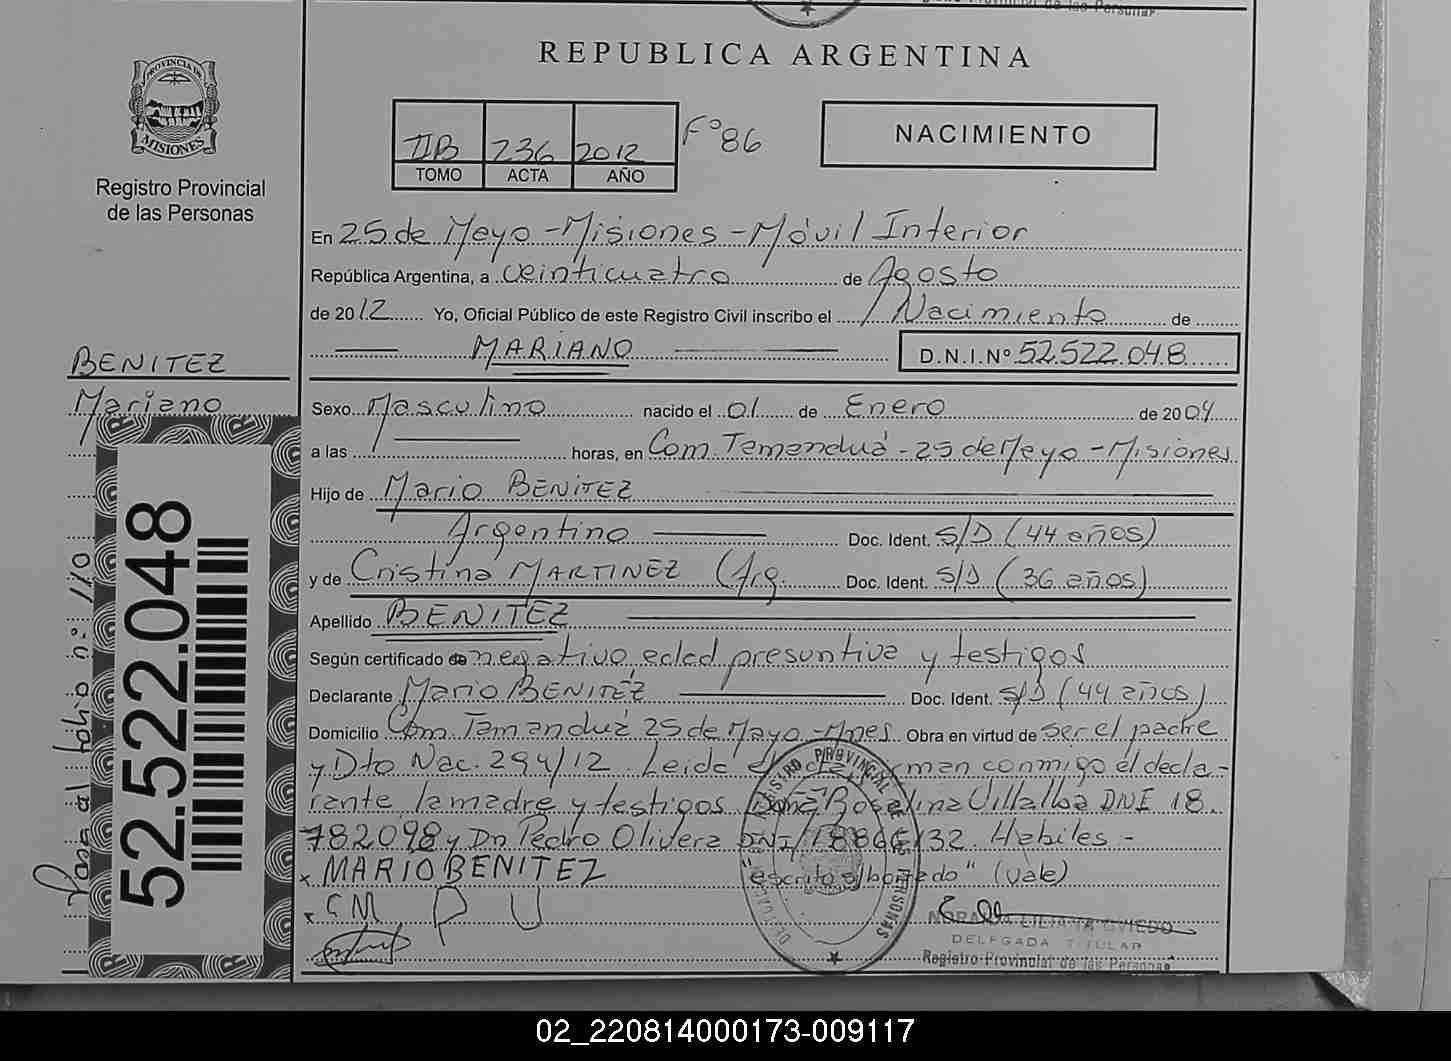 de las Personas
REPUBLICA ARGENTINA
PROVINCIA DE
MISIONES
Registro Provincial
de las Personas
IIB 236 2012 Fº 86
TOMO ACTA AÑO
NACIMIENTO
En 25 de Mayo - Misiones - Móvil Interior
República Argentina, a veinticuatro de Agosto
de 2012 Yo, Oficial Público de este Registro Civil inscribo el Nacimiento de
MARIANO D.N.I.Nº 52.522.048
BENITEZ
Mariano
Sexo Masculino nacido el 01 de Enero de 2004
a las horas, en Com. Tamanduá - 25 de Mayo - Misiones
Hijo de Mario BENITEZ
Argentino Doc. Ident. S/D (44 años)
y de Cristina MARTINEZ (Arg. Doc. Ident. S/D (36 años)
Apellido BENITEZ
Según certificado de negativo, edad presuntiva y testigos
Declarante Mario BENITEZ Doc. Ident. S/D (44 años)
Domicilio Com Tamanduá 25 de Mayo - Mnes Obra en virtud de ser el padre
y Dto Nac. 294/12. Leida el acta, firman conmigo el decla-
rante la madre y testigos Doña Roselina Villalba DNI 18.
782098 y Dn Pedro Olivera DNI Habiles -
x MARIO BENITEZ "escrito s/borrado" (Vale)
x CM P U
NORA LILIANA OVIEDO
DELEGADA TITULAR
Registro Provincial de las Personas
52.522.048
Pasa al folio nº: 110
02_220814000173-009117